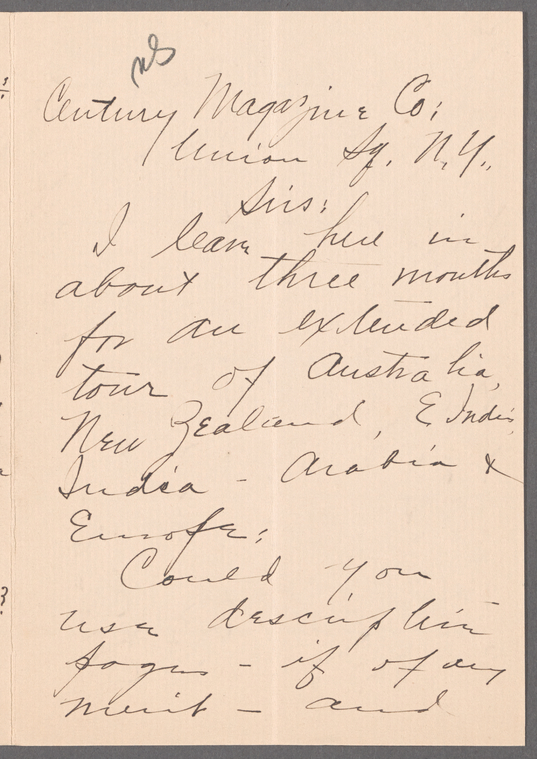 Century Magazine Co:
Union Sq. N.Y.,
Sirs:
I leave here in
about three months
for an extended
tour of Australia,
New Zealand, E Indies,
India - Arabia &
Europe:
Could you
use descriptive
pages - if of any
merit - and